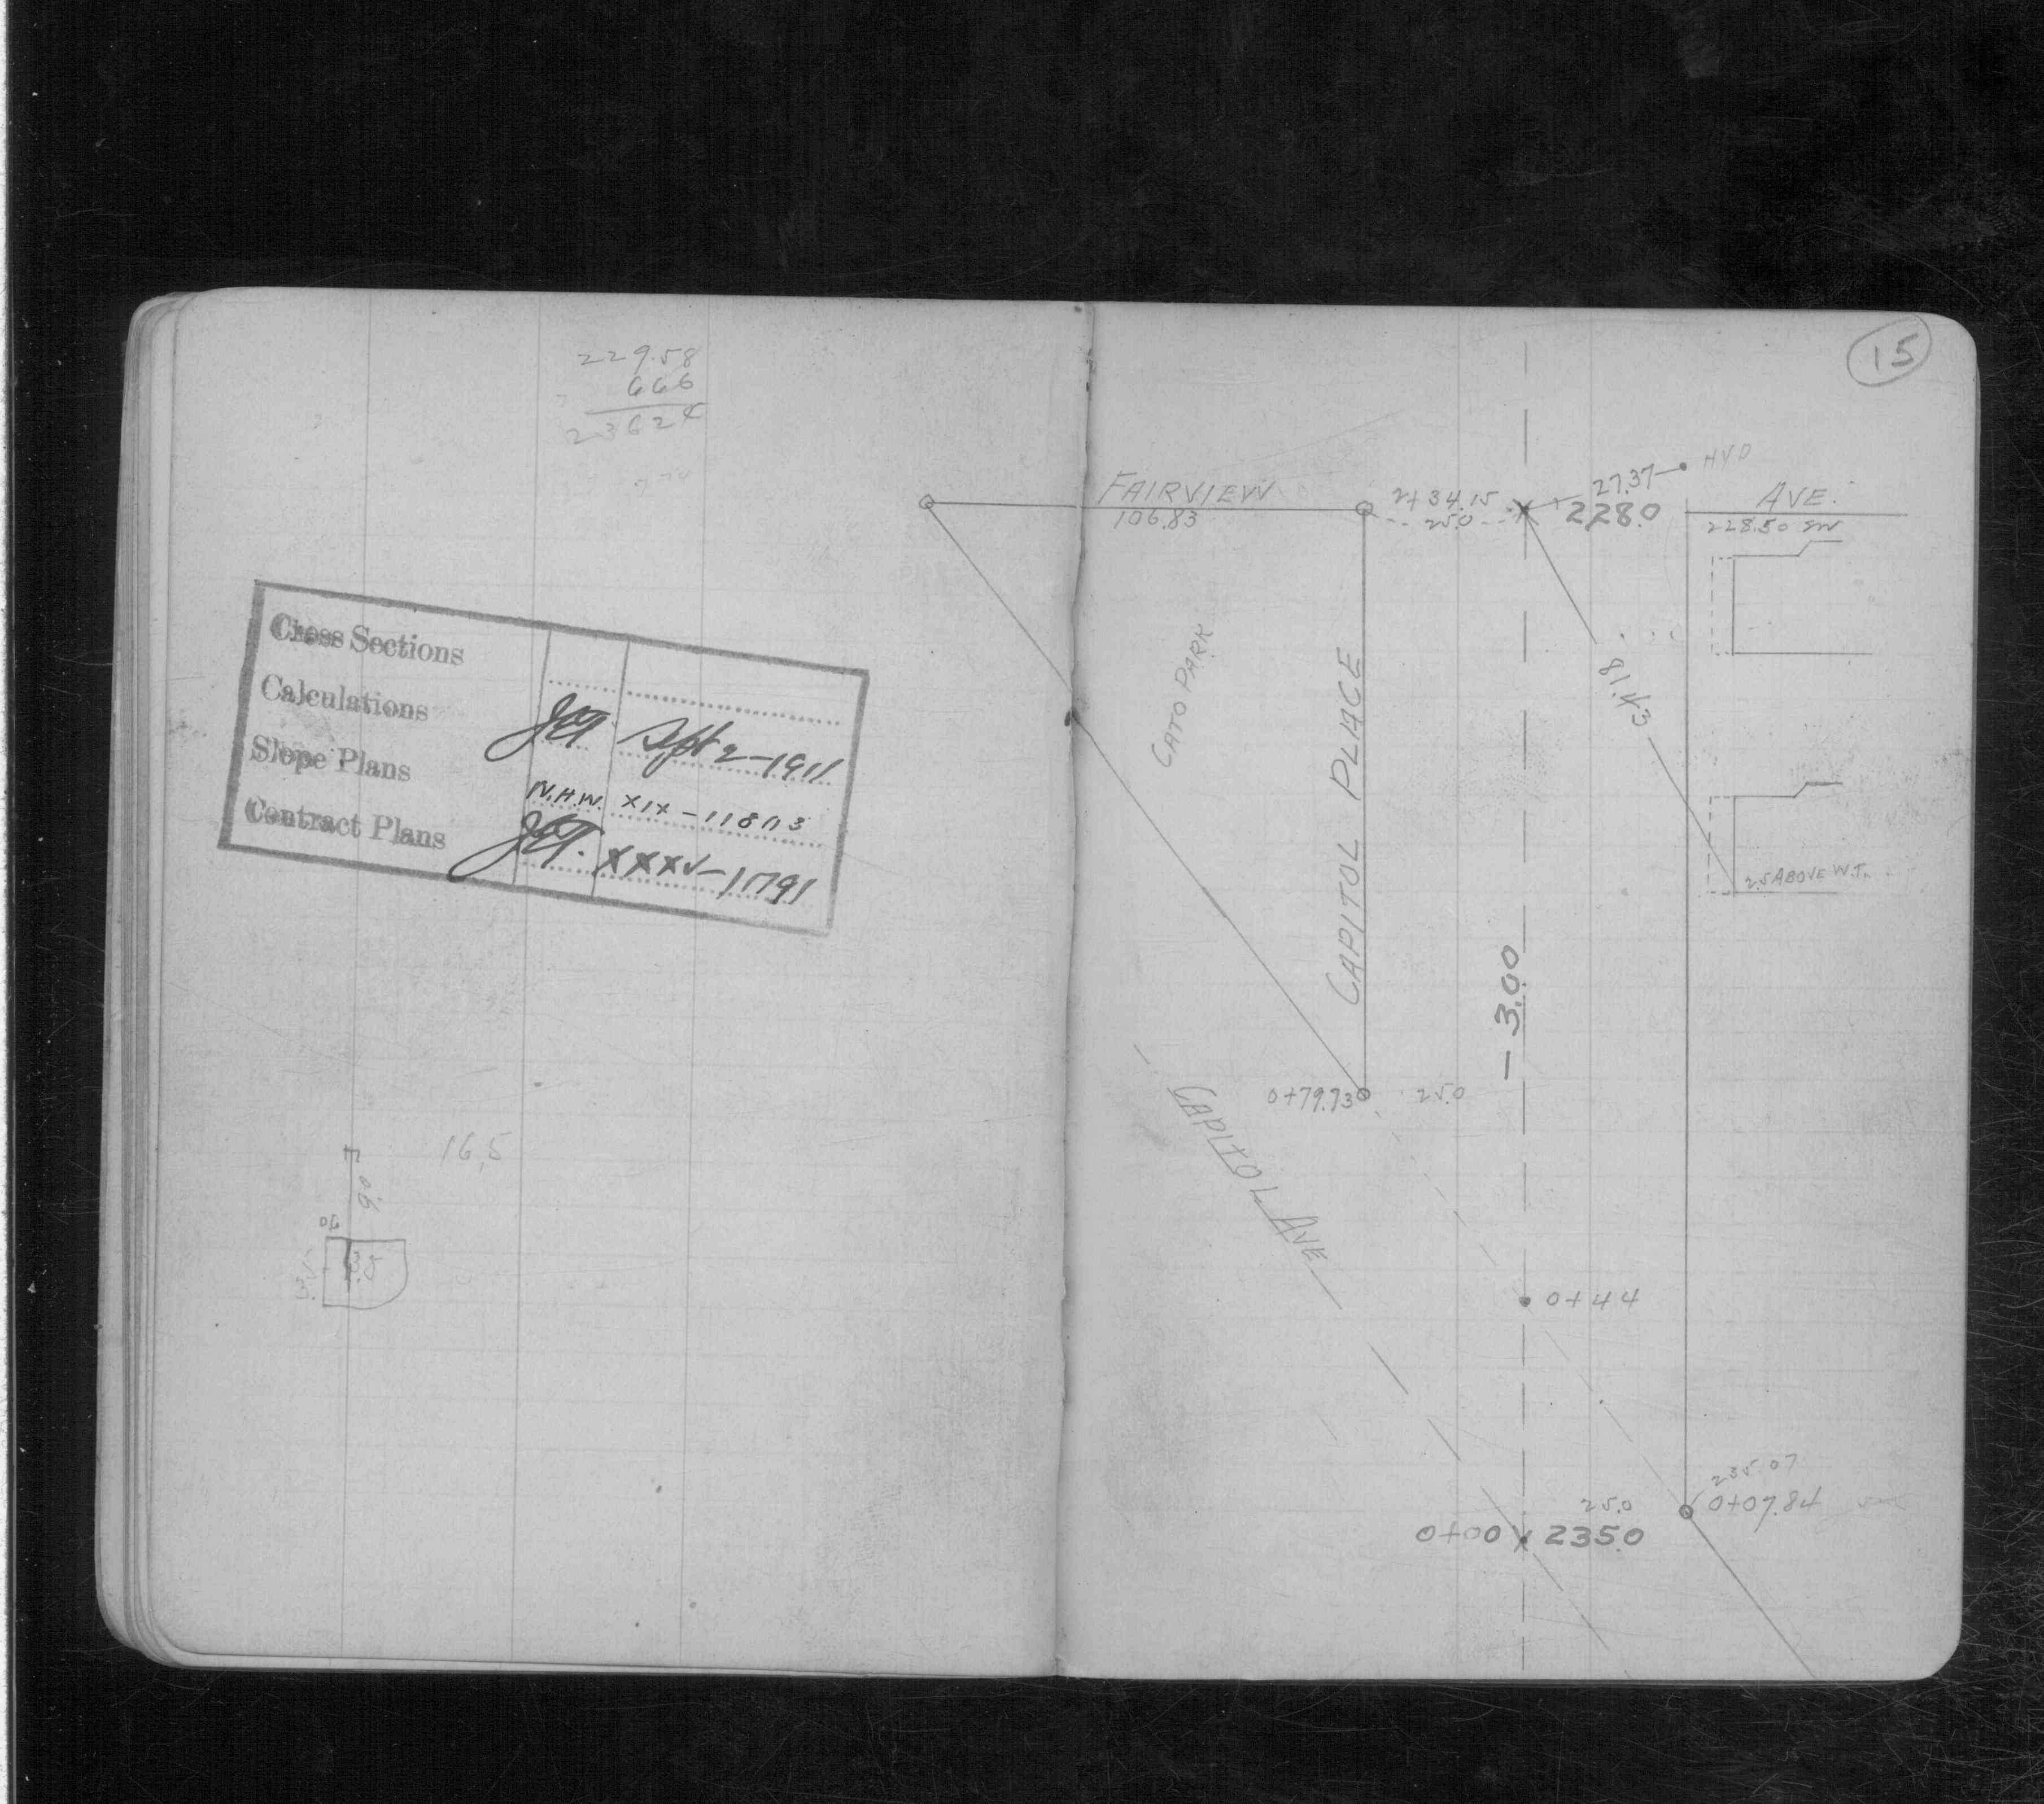 229.58
666
23624
Cross Sections
Calculations Sept 2-1911
Slope Plans N.H.W. XIX-11803
Contract Plans XXXV-1791
16.5
9.0
15
HYD
27.37
FAIRVIEW AVE.
106.83
2+34.15
25.0
228.0
228.50 SW
CATO PARK
CAPITOL PLACE
- 3.00
2.5 ABOVE W.T.
0+79.73 25.0
CAPITOL AVE
0+44
235.07
25.0 0+07.84
0+00 235.0